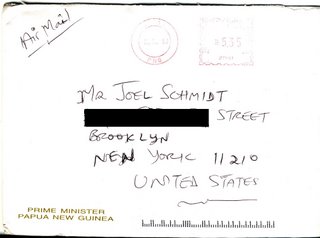 Air Mail
5.35
PNG
MR JOEL SCHMIDT
STREET
BROOKLYN
NEW YORK 11210
UNITED STATES
PRIME MINISTER
PAPUA NEW GUINEA